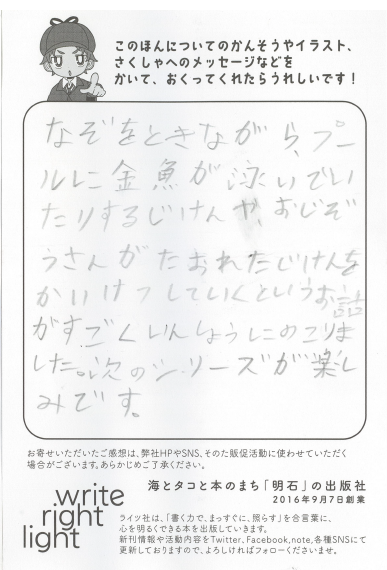 このほんについてのかんそうやイラスト、
さくしゃへのメッセージなどを
かいて、おくってくれたらうれしいです！
なぞをときながら、プー
ルに金魚が泳いでい
たりするじけんや、おじぞ
うさんがたおれたじけんを
かいけつしていくというお話
がすごくいんしょうにのこりま
した。次のシリーズが楽し
みです。
お寄せいただいたご感想は、弊社HPやSNS、そのた販促活動に使わせていただく
場合がございます。あらかじめご了承ください。
海とタコと本のまち「明石」の出版社
2016年9月7日創業
write
right
light
ライツ社は、「書く力で、まっすぐに、照らす」を合言葉に、
心を明るくできる本を出版していきます。
新刊情報や活動内容をTwitter、Facebook、note、各種SNSにて
更新しておりますので、よろしければフォローくださいませ。